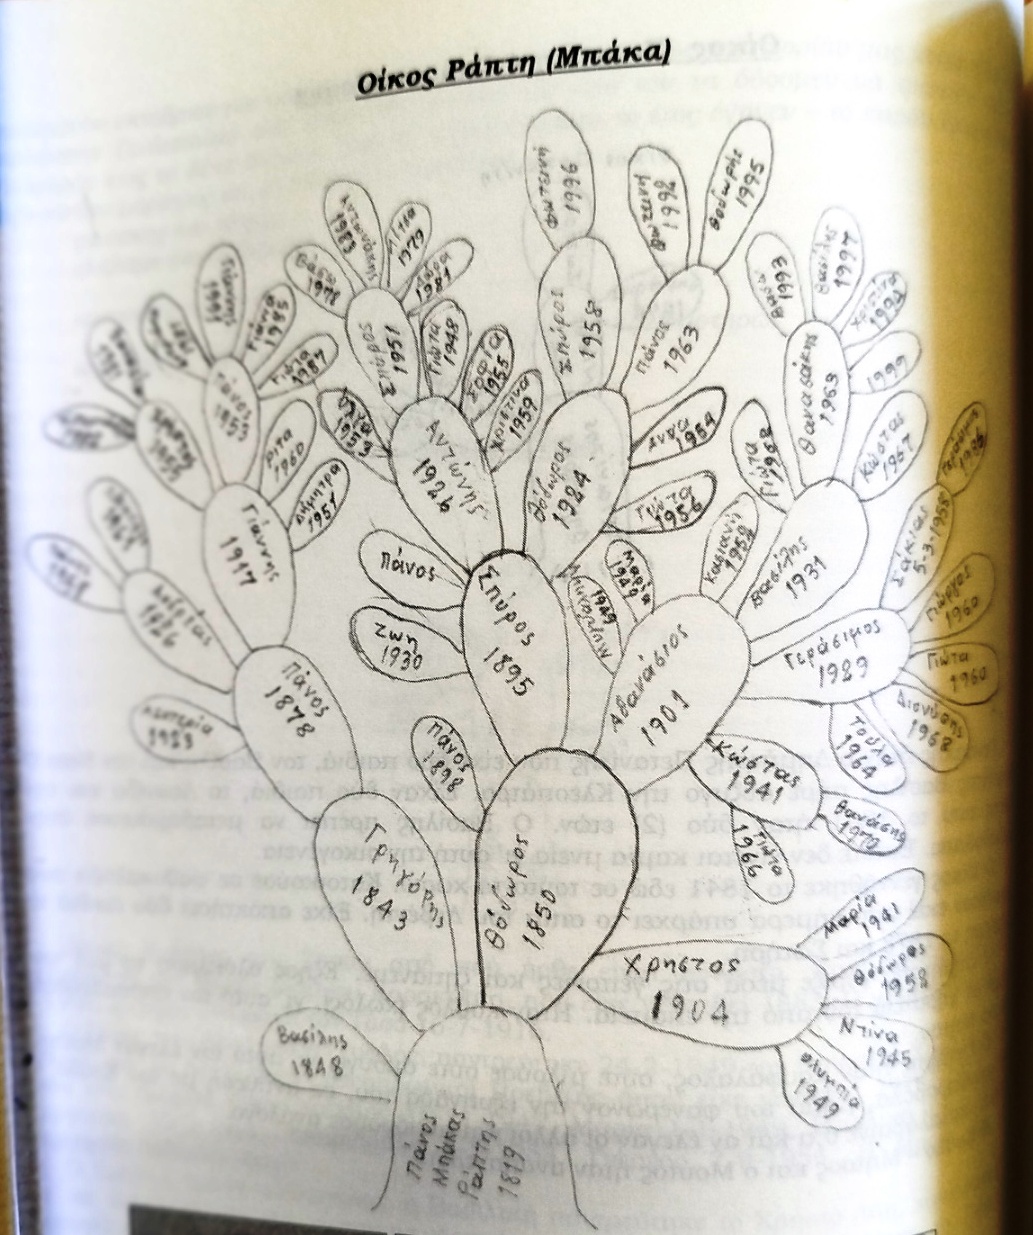 Οίκος Ράπτη (Μπάκα)
Φωτεινή
1996
Φωτεινή
1996
Θοδωρής
1995
Αντωνάκης
1983
Λίτσα
1979
Βάσω
1978
1981
Βάσω
1993
Βασίλης
1997
Χριστίνα
1994
1999
Σπύρος
1951
Γιώτα
1948
Σοφία
1955
Χριστίνα
1959
Σπύρος
1958
Πάνος
1963
Θανασάκης
1963
Κώστας
1967
Γιάννα
1985
Γιώτα
1987
Πάνος
1953
Ρίτα
1960
Δήμητρα
1951
Γιάννης
1917
Αντώνης
1926
Θόδωρος
1924
Άννα
1954
Γιώτα
1956
Γιώτα
Κασιανή
1958
Βασίλης
1931
Σάκιας
5-3-1958
Γιώργος
1960
Γιώτα
1960
Διονύσης
1968
Τούλα
1964
Γεράσιμος
1929
Μαρία
1949
1949
Ανδρέας
1926
Λευτερία
1923
Πάνος
1878
Πάνος
Ζωή
1930
Σπύρος
1895
Αθανάσιος
1901
Κώστας
1941
Θανάσης
1970
Γιώτα
1966
Πάνος
1898
Γρηγόρης
1843
Θόδωρος
1850
Χρήστος
1904
Μαρία
1941
Θόδωρος
1958
Ντίνα
1945
Ολυμπία
1949
Βασίλης
1848
Πάνος
Μπάκας
Ράπτης
1819